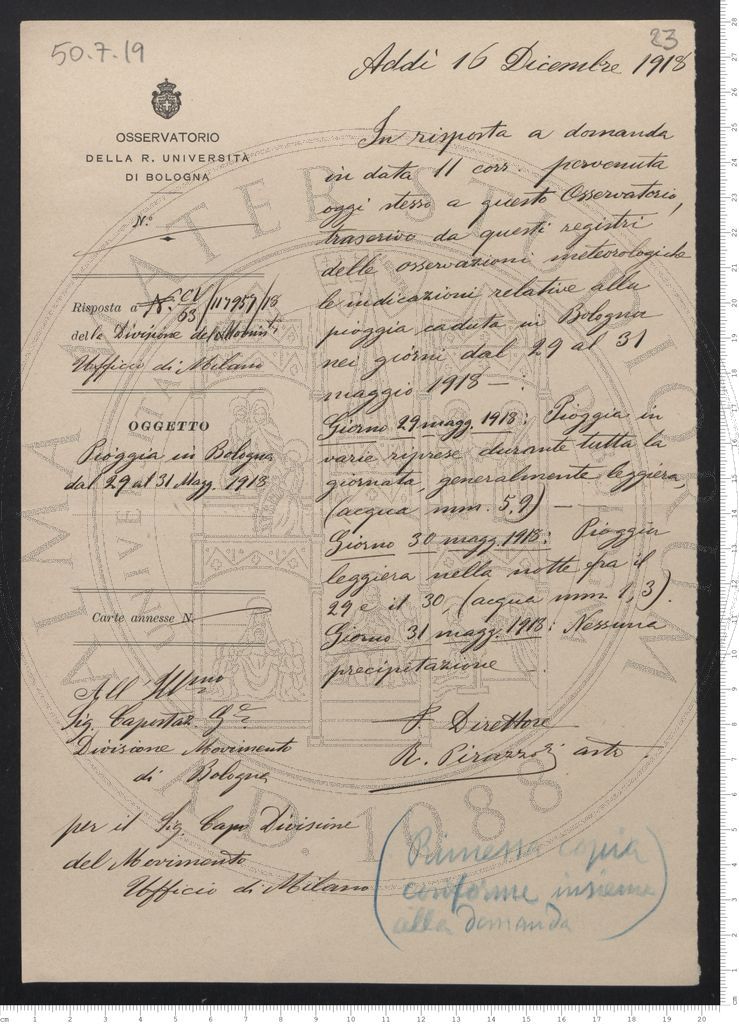 50.7.19
23
Addì 16 Dicembre 1918
OSSERVATORIO
DELLA R. UNIVERSITÀ
DI BOLOGNA
N.°
Risposta a N. CV/63/117957/18
della Divisione del Movim.to
Ufficio di Milano
OGGETTO
Pioggia in Bologna
dal 29 al 31 Magg. 1918
Carte annesse N.
All' Ill.mo
Sig. Capostaz.
Divisione Movimento
di Bologna
per il Sig. Capo Divisione
del Movimento
Ufficio di Milano
In risposta a domanda
in data 11 corr. pervenuta
oggi stesso a questo Osservatorio,
trascrivo da questi registri
delle osservazioni meteorologiche
le indicazioni relative alla
pioggia caduta in Bologna
nei giorni dal 29 al 31
maggio 1918 — :
Giorno 29 magg. 1918: Pioggia in
varie riprese durante tutta la
giornata, generalmente leggiera,
(acqua mm. 5,9) — —
Giorno 30 magg. 1918: Pioggia
leggiera nella notte fra il
29 e il 30, (acqua mm 1,3).
Giorno 31 magg. 1918: Nessuna
precipitazione
p. Direttore
R. Pirazzoli astr.
(Rimessa copia
conforme insieme
alla domanda)
ALMA MATER STUDIORUM
A.D. 1088